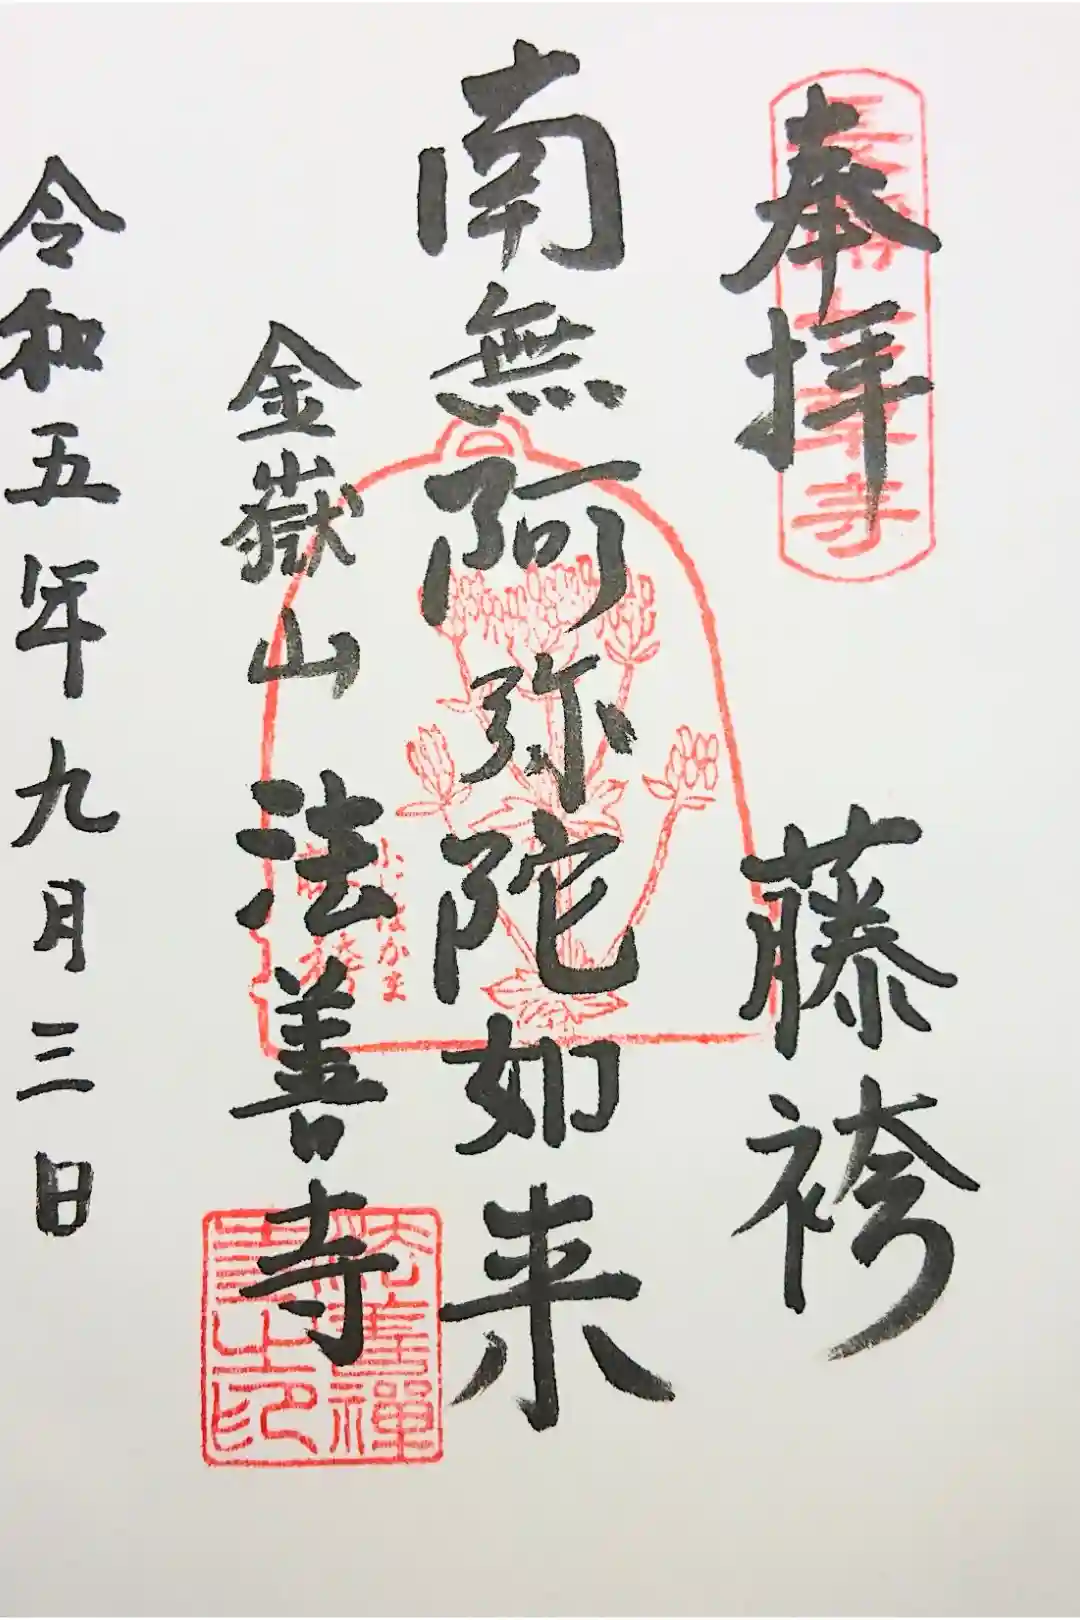 奉拝　藤袴
南無阿弥陀如来
金嶽山　法善寺
令和五年九月三日
法善禅寺之印